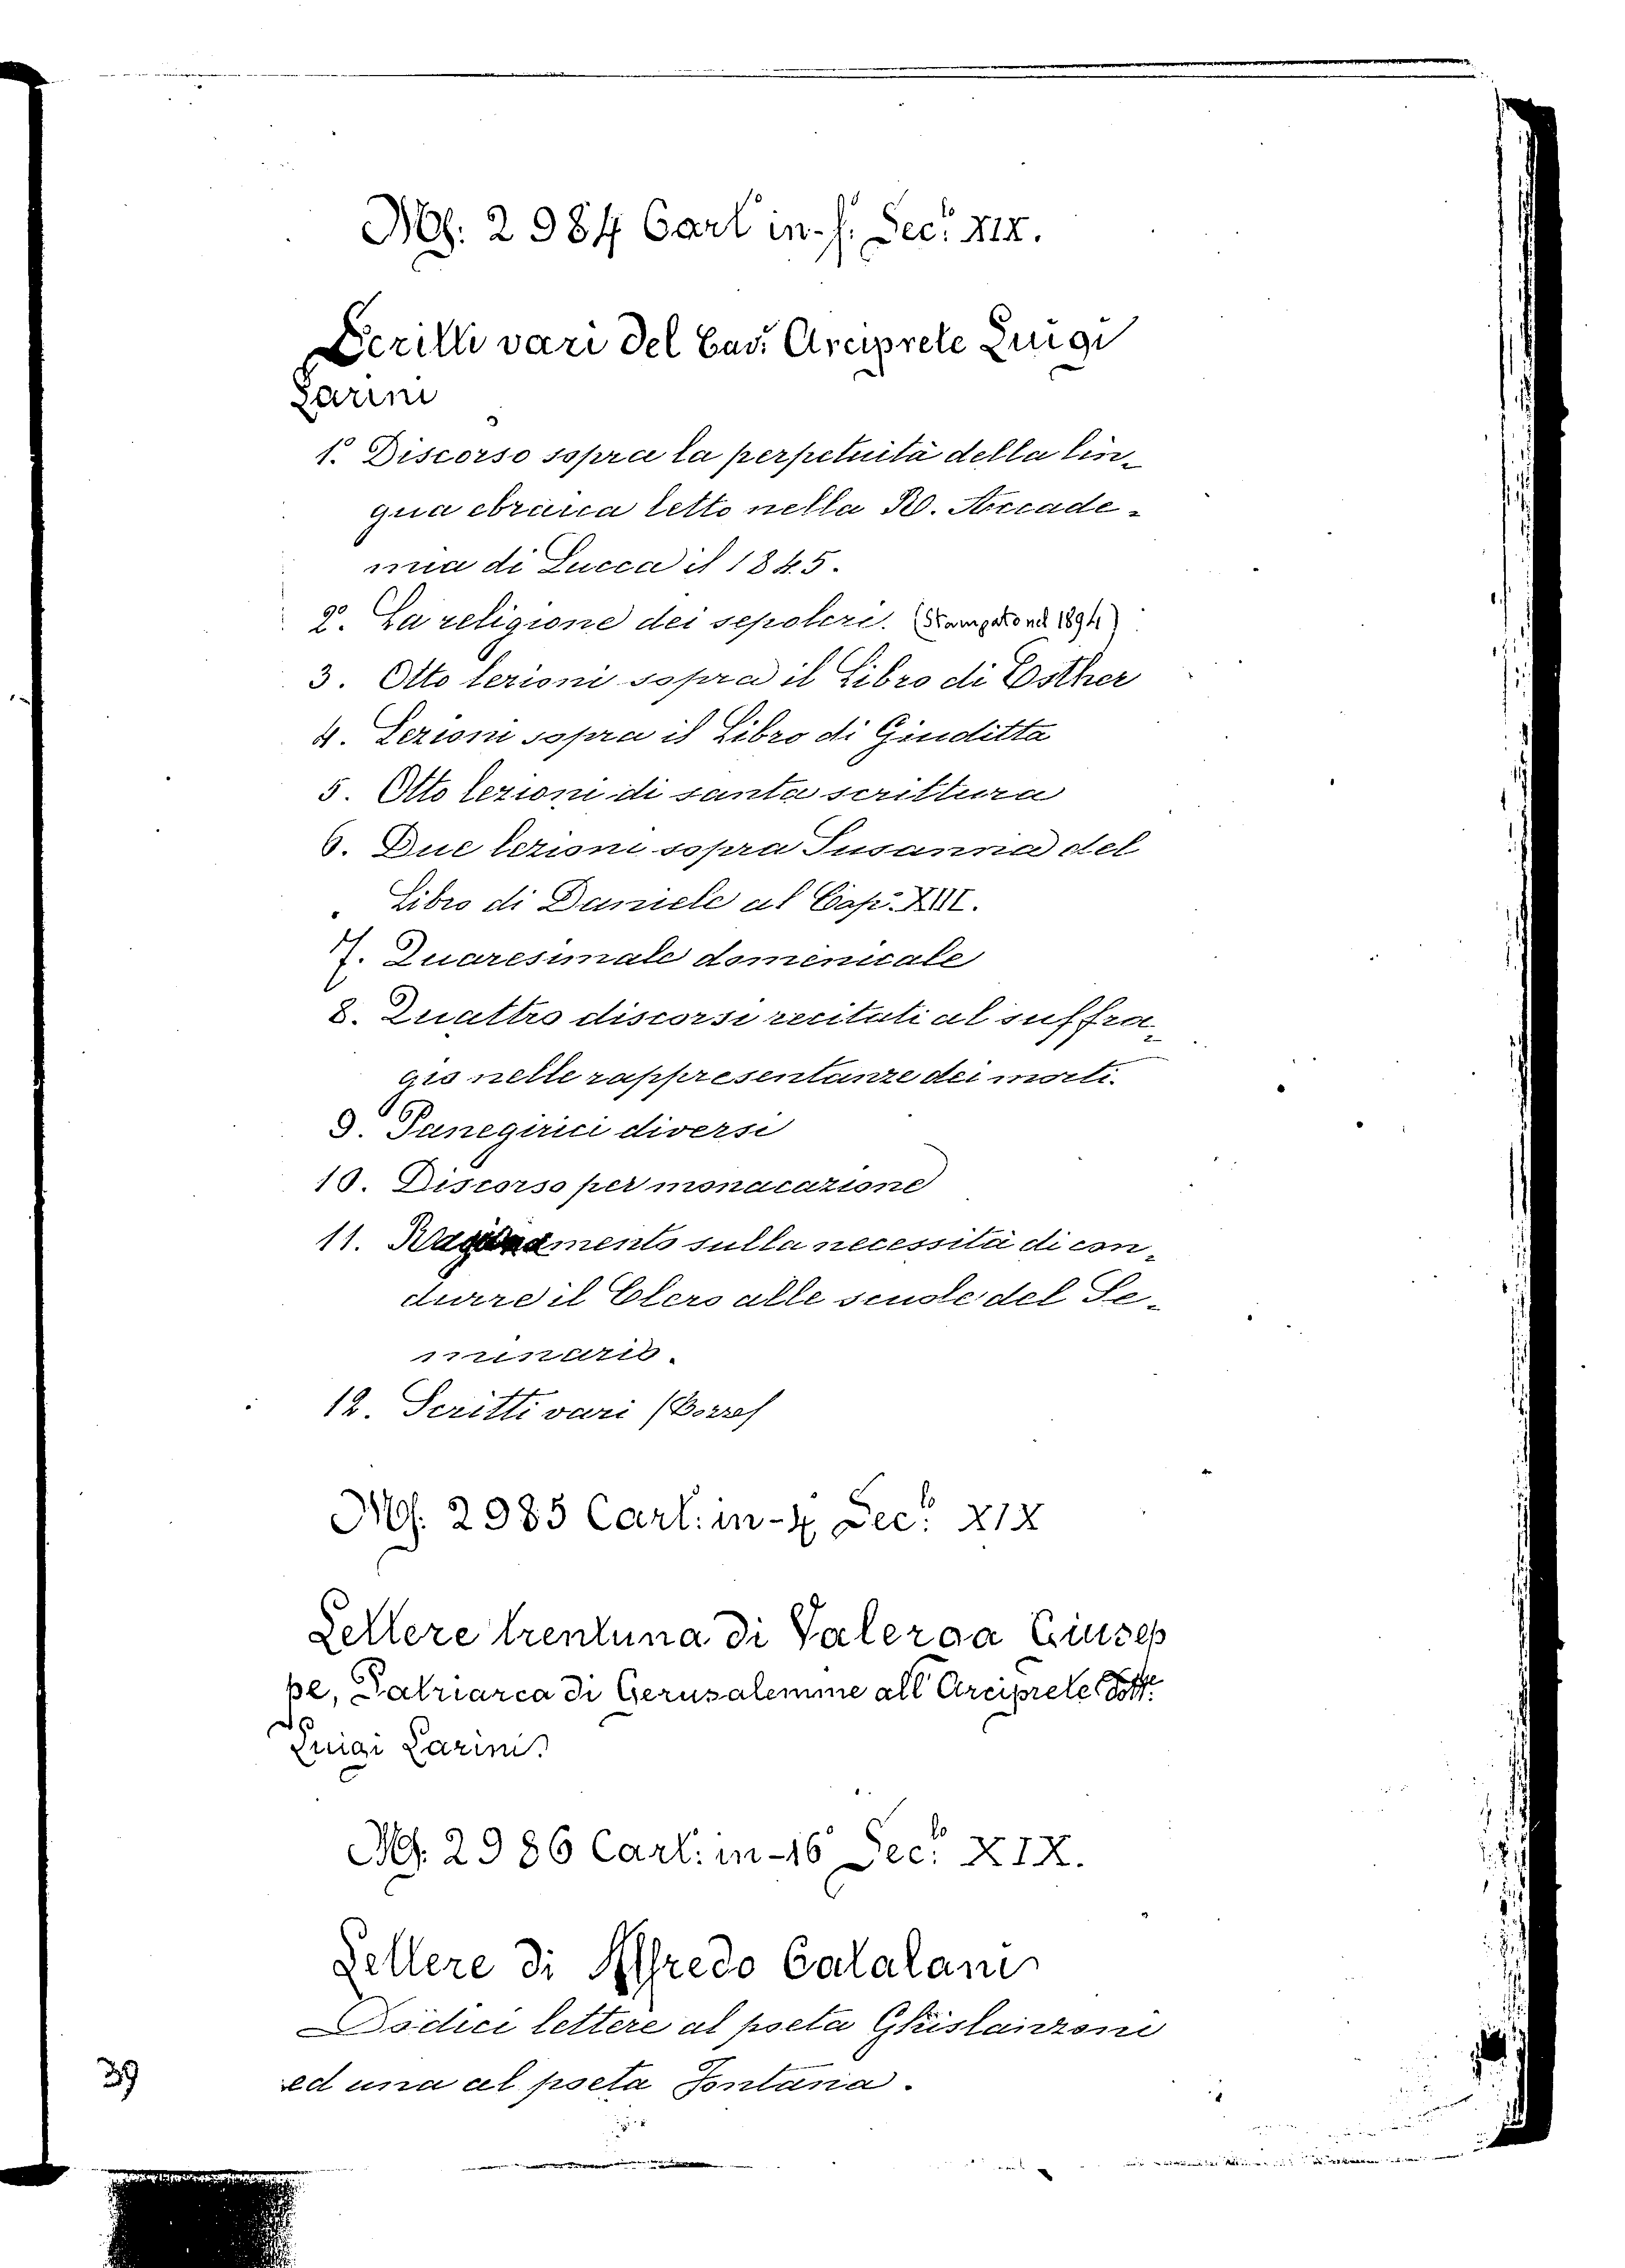 Ms. 2984 Cart in-f. Sec.º XIX.
Scritti vari del Cav. Arciprete Luigi
Larini
1º. Discorso sopra la perpetuità della lin-
gua ebraica letto nella R. Accade-
mia di Lucca il 1845.
2º. La religione dei sepolcri. (Stampato nel 1894)
3. Otto lezioni sopra il Libro di Esther
4. Lezioni sopra il Libro di Giuditta
5. Otto lezioni di santa scrittura
6. Due lezioni sopra Susanna del
Libro di Daniele al Cap. XIII.
7. Quaresimale domenicale
8. Quattro discorsi recitati al suffra-
gio nelle rappresentanze dei morti.
9. Panegirici diversi
10. Discorso per monacazione
11. Ragionamento sulla necessità di con-
durre il Clero alle scuole del Se-
minario.
12. Scritti vari
Ms. 2985 Cart. in-4 Sec.º XIX
Lettere trentuna di Valerga Giusep
pe, Patriarca di Gerusalemme all'Arciprete Dott.
Luigi Larini.
Ms. 2986 Cart. in-16 Sec.º XIX.
Lettere di Alfredo Catalani
Dodici lettere al poeta Ghislanzoni
ed una al poeta Fontana.
39